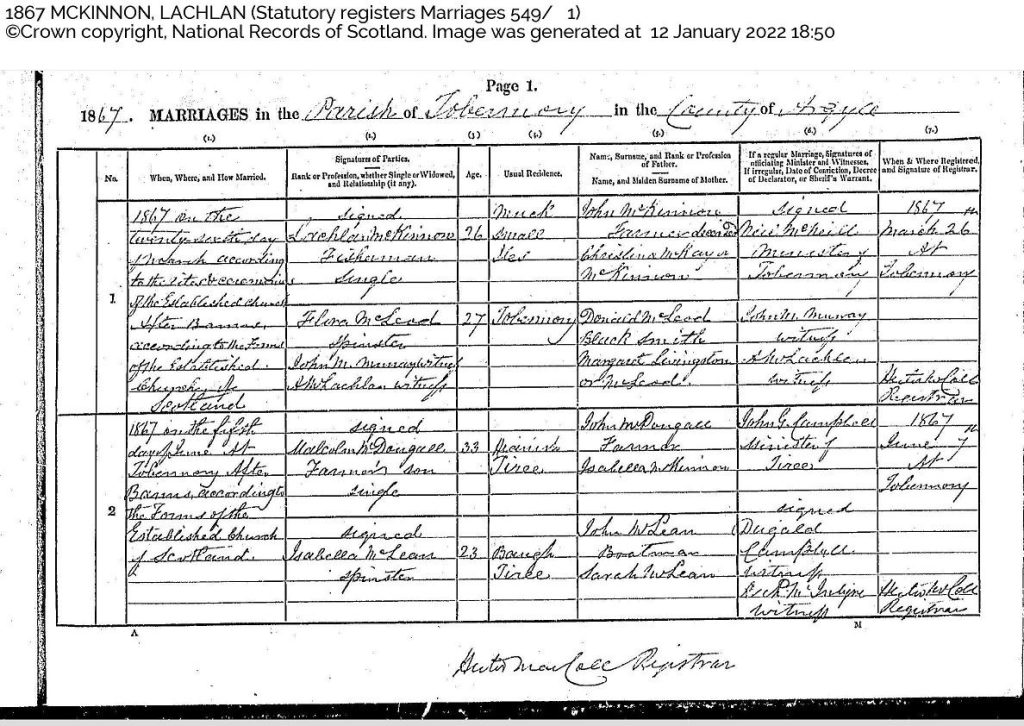 1867 MCKINNON, LACHLAN (Statutory registers Marriages 549/ 1)
©Crown copyright, National Records of Scotland. Image was generated at 12 January 2022 18:50
Page 1.
1867. MARRIAGES in the Parish of Tobermory in the County of Argyle
(1.) (2.) (3) (4.) (5.) (6.) (7.)
No.
When, Where, and How Married.
Signatures of Parties.
Rank or Profession, whether Single or Widowed,
and Relationship (if any).
Age.
Usual Residence.
Name, Surname, and Rank or Profession
of Father.
Name, and Maiden Surname of Mother.
If a regular Marriage, Signatures of
officiating Minister and Witnesses.
If irregular, Date of Conviction, Decree
of Declarator, or Sheriff's Warrant.
When & Where Registered,
and Signature of Registrar.
1
1867 on the
twenty sixth day
of March according
to the rites & ceremonies
of the Established church
After Banns,
according to the Forms
of the Established
Church of
Scotland
signed
Lachlan McKinnon
Fisherman
Single
Flora McLeod
Spinster
John M. Murray witness
A McLachlan witness
26
27
Muck
Small
Isles
Tobermory
John McKinnon
Farmer deceased
Christina McKay or
McKinnon
Donald McLeod
Black Smith
Margaret Livingston
or McLeod
signed
Neil McNeill
Minister
Tobermory
John M. Murray
witness
A McLachlan
witness
1867
March 26th
At
Tobermory
Hector McColl
Registrar
2
1867 on the first
day of June At
Tobermory After
Banns, according to
the Forms of the
Established Church
of Scotland.
signed
Malcolm McDougall
Farmer's son
single
signed
Isabella McLean
spinster
33
23
Tiree
Baugh
Tiree
John McDougall
Farmer
Isabella McKinnon
John McLean
Boatman
Sarah McLean
John G. Campbell
Minister of
Tiree
signed
Dugald
Campbell
witness
witness
1867
June 7th
At
Tobermory
Hector McColl
Registrar
A M
Hector MacColl Registrar